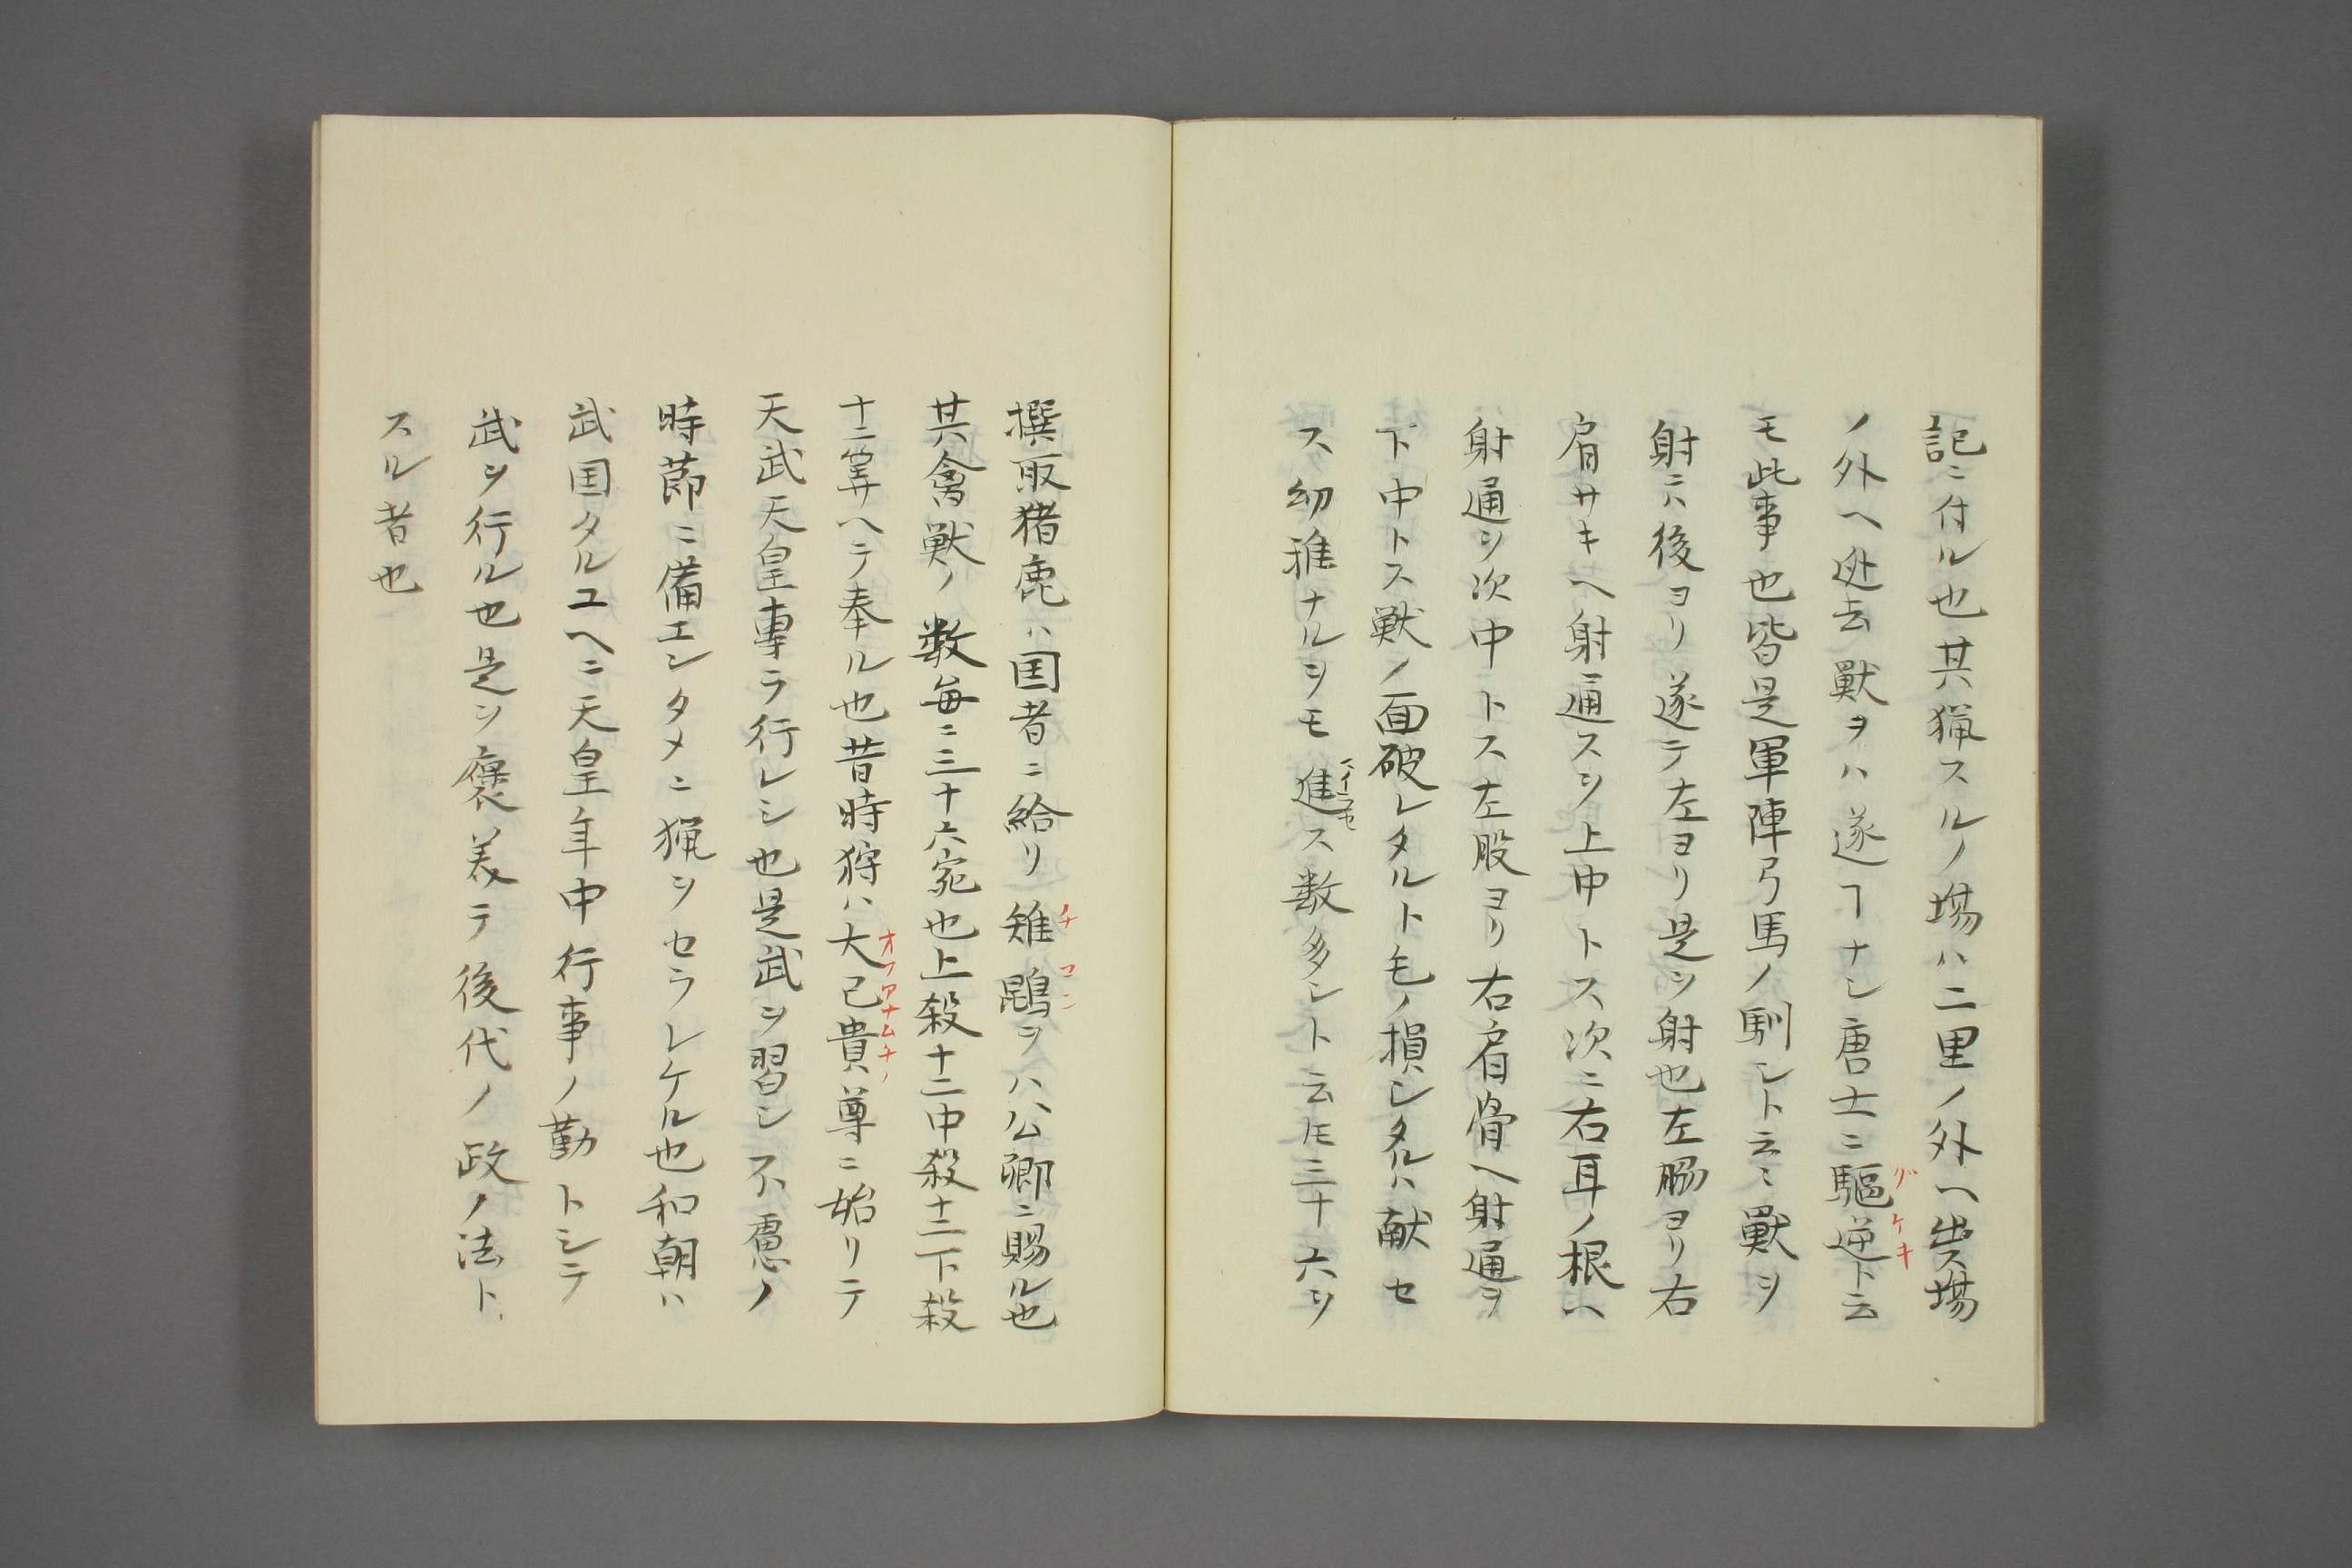 記ニ付ル也其猟スルノ場ハ二里ノ外ヘ出ス場
ノ外ヘ迯去獣ヲハ逐ヿナシ唐士ニ駆逆ト云
グケキ
モ此事也皆是軍陣弓馬ノ馴シト云ミ獣ヲ
射ニハ後ヨリ逐テ左ヨリ是ヲ射也左脇ヨリ右
肩サキヘ射通スヲ上中トス次ニ右耳ノ根ヘ
射通ヲ次中トス左股ヨリ右肩骨ヘ射通ヲ
下中トス獣ノ面破レタルト毛ノ損シタルハ献セ
ス幼稚ナルヲモ進ス数多シト云ヒ三十六ヲ
撰取猪鹿ハ国者ニ給リ雉鵾ヲハ公卿ニ賜ル也
チコン
其禽獣ノ数毎ニ三十六宛也上殺十二中殺十二下殺
十二筭ヘテ奉ル也昔時狩ハ大己貴尊ニ始リテ
オフアナムチノ
天武天皇専ラ行レシ也是武ヲ習シ不慮ノ
時莭ニ備エンタメニ猟ヲセラレケル也和朝ハ
武国タルユヘニ天皇年中行事ノ勤トシテ
武ヲ行ル也是ヲ褒美テ後代ノ政ノ法ト
スル者也